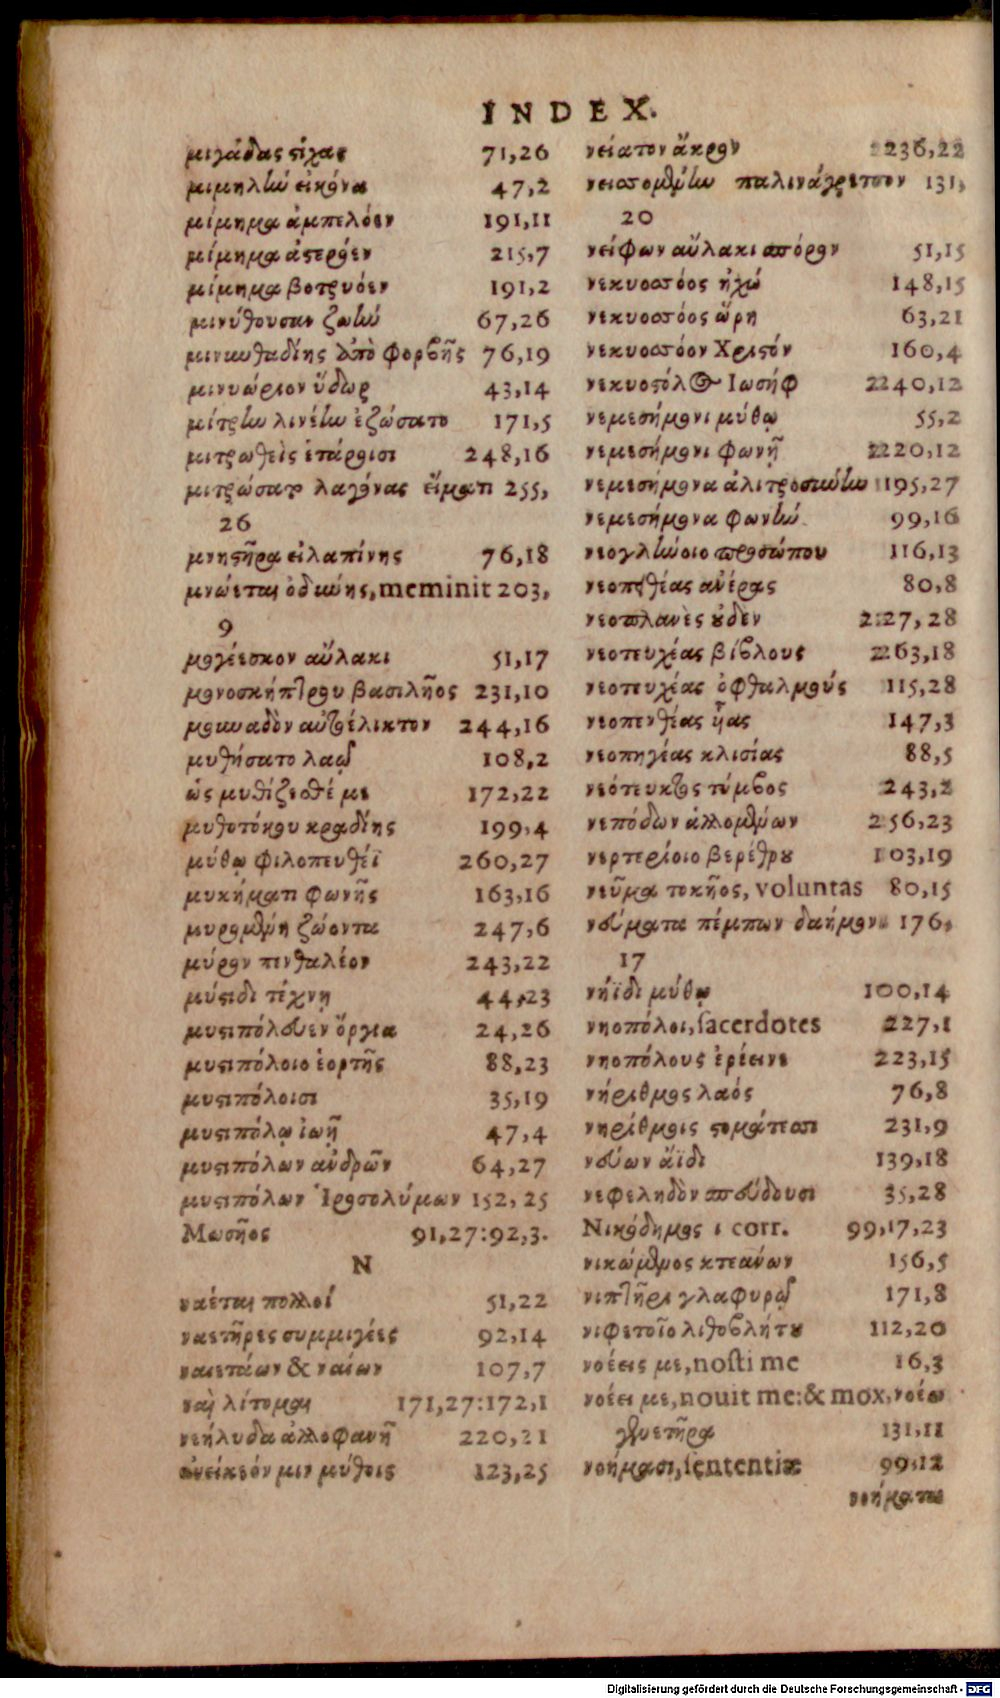 INDEX.
μιγάδας στίχας 71,26
μιμηλὴν εἰκόνα 47,2
μίμημα ἀμπελόεν 191,11
μίμημα ἀστερόεν 215,7
μίμημα βοτρυόεν 191,2
μινύθουσαν ζωὴν 67,26
μινυνθαδίης ἀπὸ φορβῆς 76,19
μινυώριον ὕδωρ 43,14
μίτρην λινέην ἐζώσατο 171,5
μιτρωθεὶς ἑτάροισι 248,16
μιτρώσατο λαγόνας εἵματι 255,
26
μνηστῆρα εἰλαπίνης 76,18
μνώεται ὀδύνης, meminit 203,
9
μογέεσκον αὔλακι 51,17
μονοσκήπτρου βασιλῆος 231,10
μουναδὸν αὐτοέλικτον 244,16
μυθήσατο λαῷ 108,2
ὡς μυθίζεσθέ με 172,22
μυθοτόκου κραδίης 199,4
μύθῳ φιλοπευθέϊ 260,27
μυκήματι φωνῆς 163,16
μυρομένη ζώοντα 247,6
μύρον πενθαλέον 243,22
μύστιδι τέχνῃ 44,23
μυστιπόλευεν ὄργια 24,26
μυστιπόλοιο ἑορτῆς 88,23
μυστιπόλοισι 35,19
μυστιπόλῳ ἰωῇ 47,4
μυστιπόλων ἀνδρῶν 64,27
μυστιπόλων Ἱεροσολύμων 152,25
Μωσῆος 91,27:92,3.
N
ναέται πολλοί 51,22
ναετῆρες συμμιγέες 92,14
ναιετάων & ναίων 107,7
ναὶ λίτομαι 171,27:172,1
νεήλυδα ἀλλοφανῆ 220,21
ἐνείκεόν μιν μύθοις 123,25
νείατον ἄκρον 236,22
νεισσομένην παλινάγρετον 131,
20
νείφων αὔλακι σπόρον 51,15
νεκυοσσόος ἠχώ 148,15
νεκυοσσόος ὥρη 63,21
νεκυοσσόον Χριστόν 160,4
νεκυοστόλος Ιωσήφ 240,12
νεμεσήμονι μύθῳ 55,2
νεμεσήμονι φωνῇ 220,12
νεμεσήμονα ἀλιτροσύνην 195,27
νεμεσήμονα φωνὴν 99,16
νεογλήνοιο προσώπου 116,13
νεοπειθέας ἀνέρας 80,8
νεοπλανὲς οὖδεν 227,28
νεοτευχέας βίβλους 263,18
νεοτευχέας ὀφθαλμούς 115,28
νεοπενθέας ἧας 147,3
νεοπηγέας κλισίας 88,5
νεότευκτος τύμβος 243,2
νεπόδων ἁλλομένων 256,23
νερτερίοιο βερέθρου 103,19
νεῦμα τοκῆος, voluntas 80,15
νεύματα πέμπων δαήμονα 176,
17
νήϊδι μύθῳ 100,14
νηοπόλοι, sacerdotes 227,1
νηοπόλους ἐρέεινε 223,15
νήριθμος λαός 76,8
νηρίθμοις στομάτεσσι 231,9
νεύων ἄϊδι 139,18
νεφεληδὸν σπεύδουσι 35,28
Νικόδημος ι corr. 99,17,23
νικώμενος κτεάνων 156,5
νιπτῆρι γλαφυρῷ 171,8
νιφετοῖο λιθοβλήτου 112,20
νοέεις με, nosti me 16,3
νοέει με, nouit me: & mox, νοέω
γενετῆρα 131,11
νοήμασι, sententiæ 99,12
νοήματα
Digitalisierung gefördert durch die Deutsche Forschungsgemeinschaft - DFG